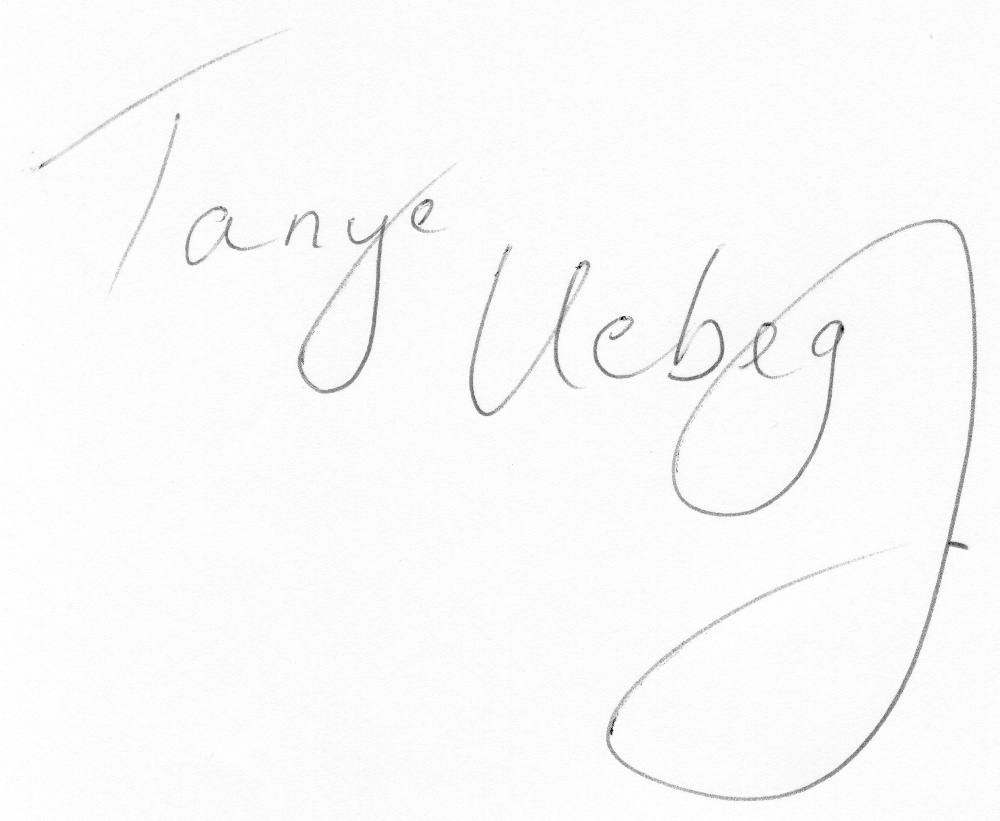 Tanye
Uebeg